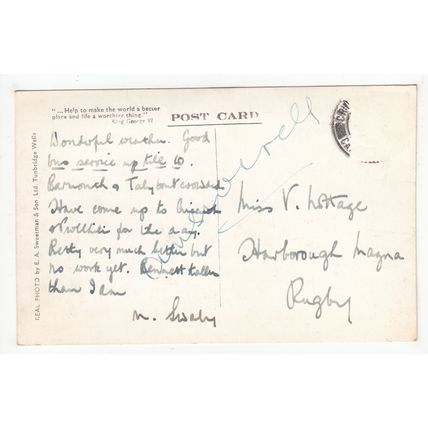 "... Help to make the world a better
place and life a worthier thing."
King George VI
POST CARD
Wonderful weather. Good
bus service up till 10.
Barmouth & Talybont crowded
Have come up to
& Pwllheli for the day.
Betty very much better but
no work yet. Bennett taller
than I am
M. Swaby
Miss V. Nottage
Harborough Magna
Rugby
REAL PHOTO by E. A. Sweetman & Son Ltd. Tunbridge Wells